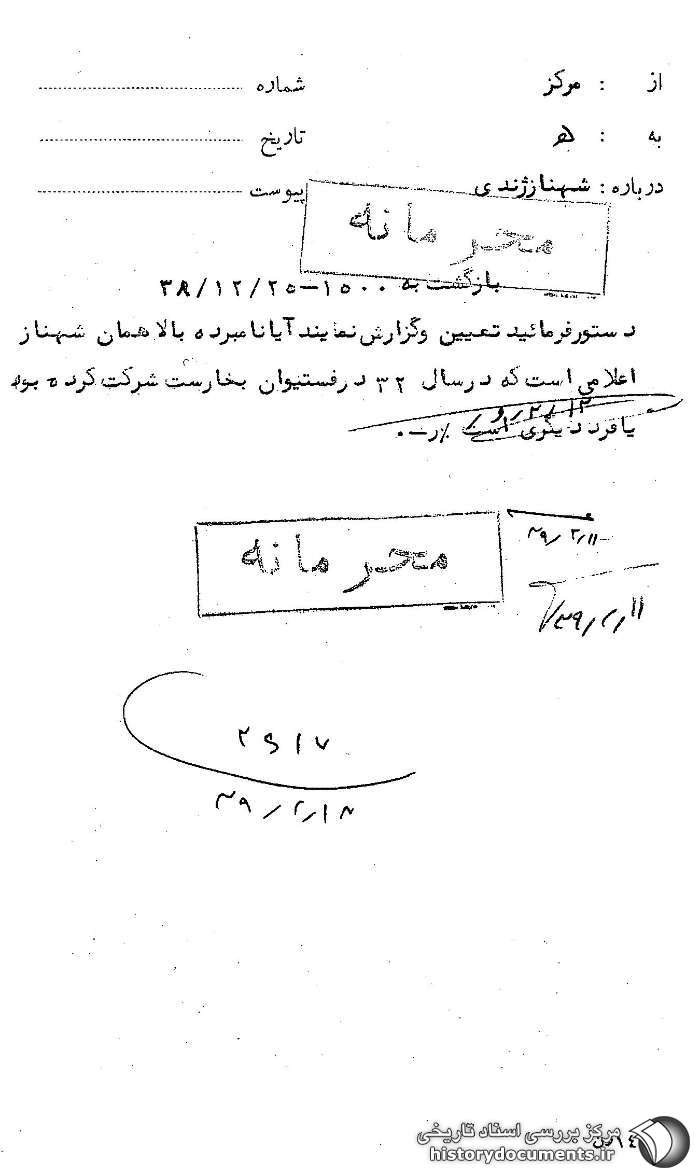 از : مرکز شماره
به : هـ تاریخ
درباره : شهناز ژندی پیوست
محرمانه
بازگشت به ۱۵۰۰-۳۸/۱۲/۲۵
دستور فرمائید تعیین وگزارش نمایند آیا نامبرده بالا همان شهناز
اعلامی است که در سال ۳۲ در فستیوان بخارست شرکت کرده بود
یا فرد دیگری است
محرمانه
۳۹/۲/۱۱
۳۹/۲/۱۱
۳۹/۲/۱۸
مرکز بررسی اسناد تاریخی
historydocuments.ir